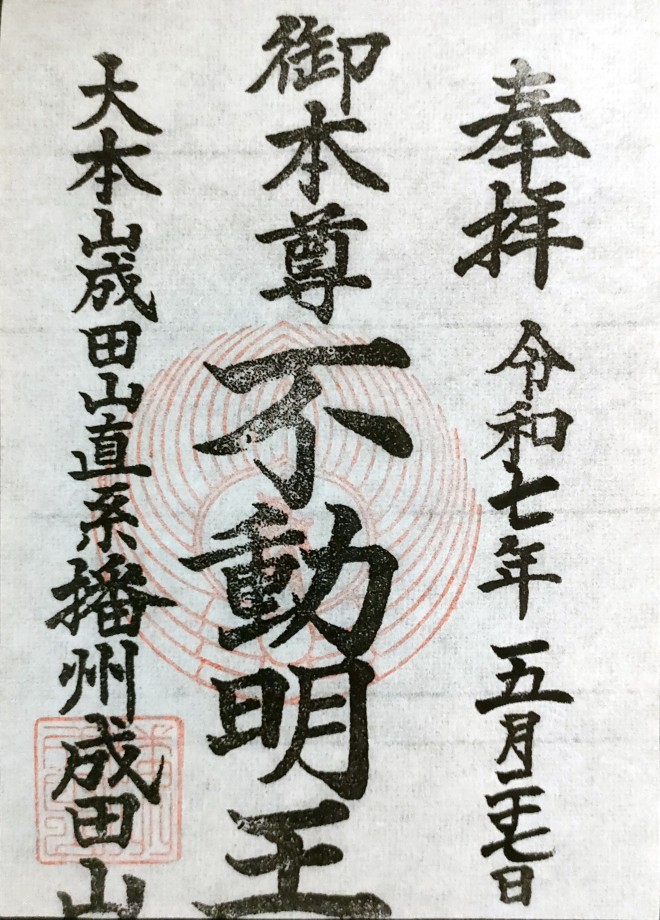 奉拝 令和七年 五月二十七日
御本尊不動明王
大本山成田山直系播州成田山